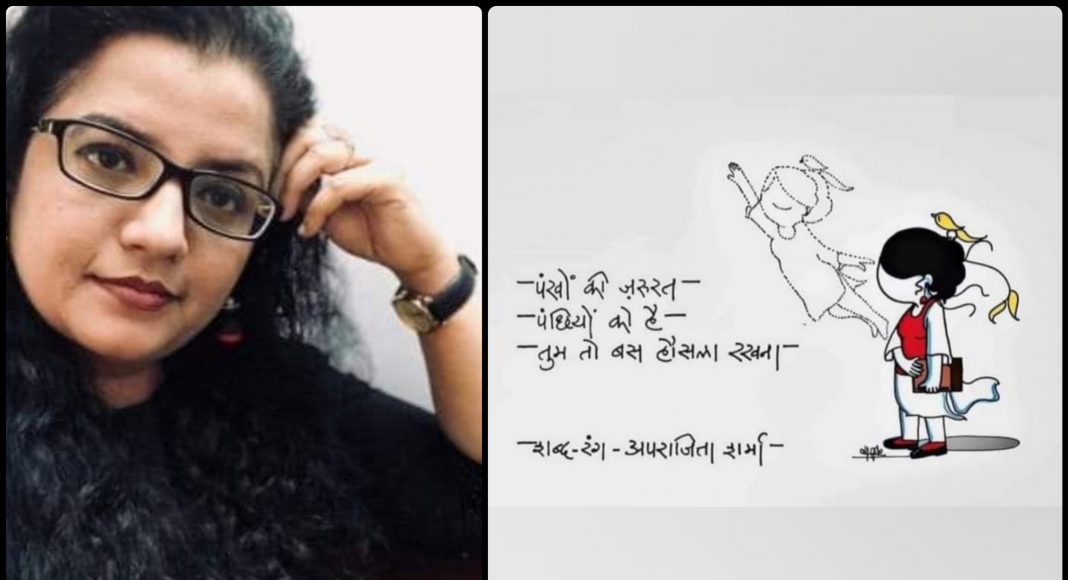 पंखों की ज़रुरत
पंछियों को है
तुम तो बस हौसला रखना
शब्द-रंग - अपराजिता शर्मा